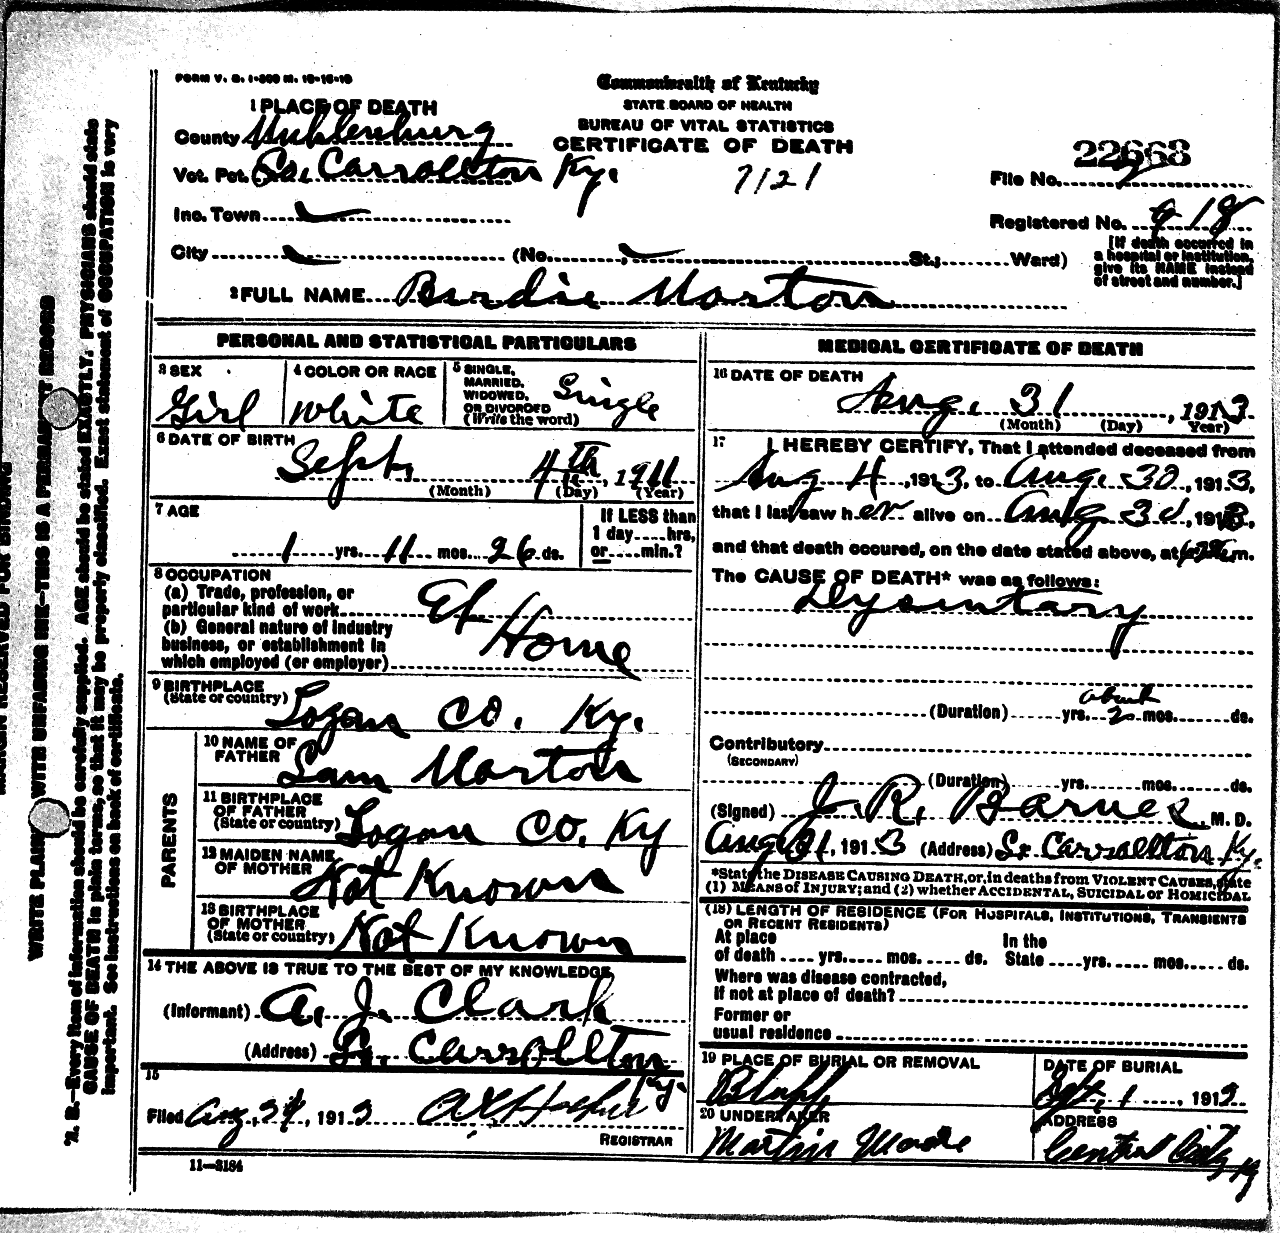 FORM V. S. 1-300 M. 10-16-10
Commonwealth of Kentucky
STATE BOARD OF HEALTH
BUREAU OF VITAL STATISTICS
CERTIFICATE OF DEATH
7121
1 PLACE OF DEATH
County Muhlenburg
Vot. Pct. So. Carrollton Ky.
Inc. Town
City (No. St.; Ward)
22668
File No.
Registered No. 918
[If death occurred in
a hospital or institution,
give its NAME instead
of street and number.]
2 FULL NAME Birdie Morton
PERSONAL AND STATISTICAL PARTICULARS
3 SEX
Girl
4 COLOR OR RACE
White
5 SINGLE,
MARRIED,
WIDOWED,
OR DIVORCED
(Write the word)
Single
6 DATE OF BIRTH
Sept, 4th, 1911
(Month) (Day) (Year)
7 AGE
1 yrs. 11 mos. 26 ds.
If LESS than
1 day....hrs.
or....min.?
8 OCCUPATION
(a) Trade, profession, or
particular kind of work
(b) General nature of industry
business, or establishment in
which employed (or employer)
At Home
9 BIRTHPLACE
(State or country)
Logan Co. Ky.
PARENTS
10 NAME OF
FATHER
Sam Morton
11 BIRTHPLACE
OF FATHER
(State or country)
Logan Co. Ky
12 MAIDEN NAME
OF MOTHER
Not Known
13 BIRTHPLACE
OF MOTHER
(State or country)
Not Known
14 THE ABOVE IS TRUE TO THE BEST OF MY KNOWLEDGE
(Informant) A. J. Clark
(Address) So. Carrollton Ky.
15
Filed Aug, 31, 1913
REGISTRAR
11—3184
MEDICAL CERTIFICATE OF DEATH
16 DATE OF DEATH
Aug. 31, 1913
(Month) (Day) Year)
17 I HEREBY CERTIFY, That I attended deceased from
Aug 4, 1913, to Aug. 30, 1913,
that I last saw her alive on Aug 30, 1913,
and that death occured, on the date stated above, at m.
The CAUSE OF DEATH* was as follows:
Dysintary
about
(Duration) yrs. 2 mos. ds.
Contributory
(SECONDARY)
(Duration) yrs. mos. ds.
(Signed) J. R. Barnes, M. D.
Aug 31, 1913 (Address) So Carrollton Ky.
*State the DISEASE CAUSING DEATH, or, in deaths from VIOLENT CAUSES, state
(1) MEANS OF INJURY; and (2) whether ACCIDENTAL, SUICIDAL or HOMICIDAL
(18) LENGTH OF RESIDENCE (FOR HOSPITALS, INSTITUTIONS, TRANSIENTS
OR RECENT RESIDENTS)
At place
of death .... yrs. .... mos. .... ds.
In the
State ....yrs. .... mos. .... ds.
Where was disease contracted,
If not at place of death?
Former or
usual residence
19 PLACE OF BURIAL OR REMOVAL
Bluff
DATE OF BURIAL
Sept, 1, 1913
20 UNDERTAKER
Martin Moore
ADDRESS
Central City Ky
MARGIN RESERVED FOR BINDING
WRITE PLAINLY WITH UNFADING INK—THIS IS A PERMANENT RECORD
N. B.—Every item of information should be carefully supplied. AGE should be stated EXACTLY. PHYSICIANS should state
CAUSE OF DEATH in plain terms, so that it may be properly classified. Exact statement of OCCUPATION is very
important. See instructions on back of certificate.